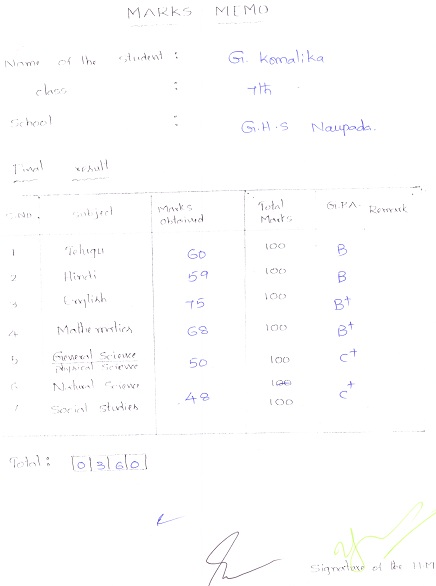 MARKS MEMO
Name of the student : G. Komalika
class : 7th
School : G.H.S Naupada.
Final result
S.No. Subject Marks Obtained Total Marks G.P.A. Remark
1 Telugu 60 100 B
2 Hindi 59 100 B
3 English 75 100 B+
4 Mathematics 68 100 B+
5 General Science 50 100 C+
Physical Science
6 Natural Science 100
7 Social studies 48 100 C+
Total : 0360
Signature of the HM